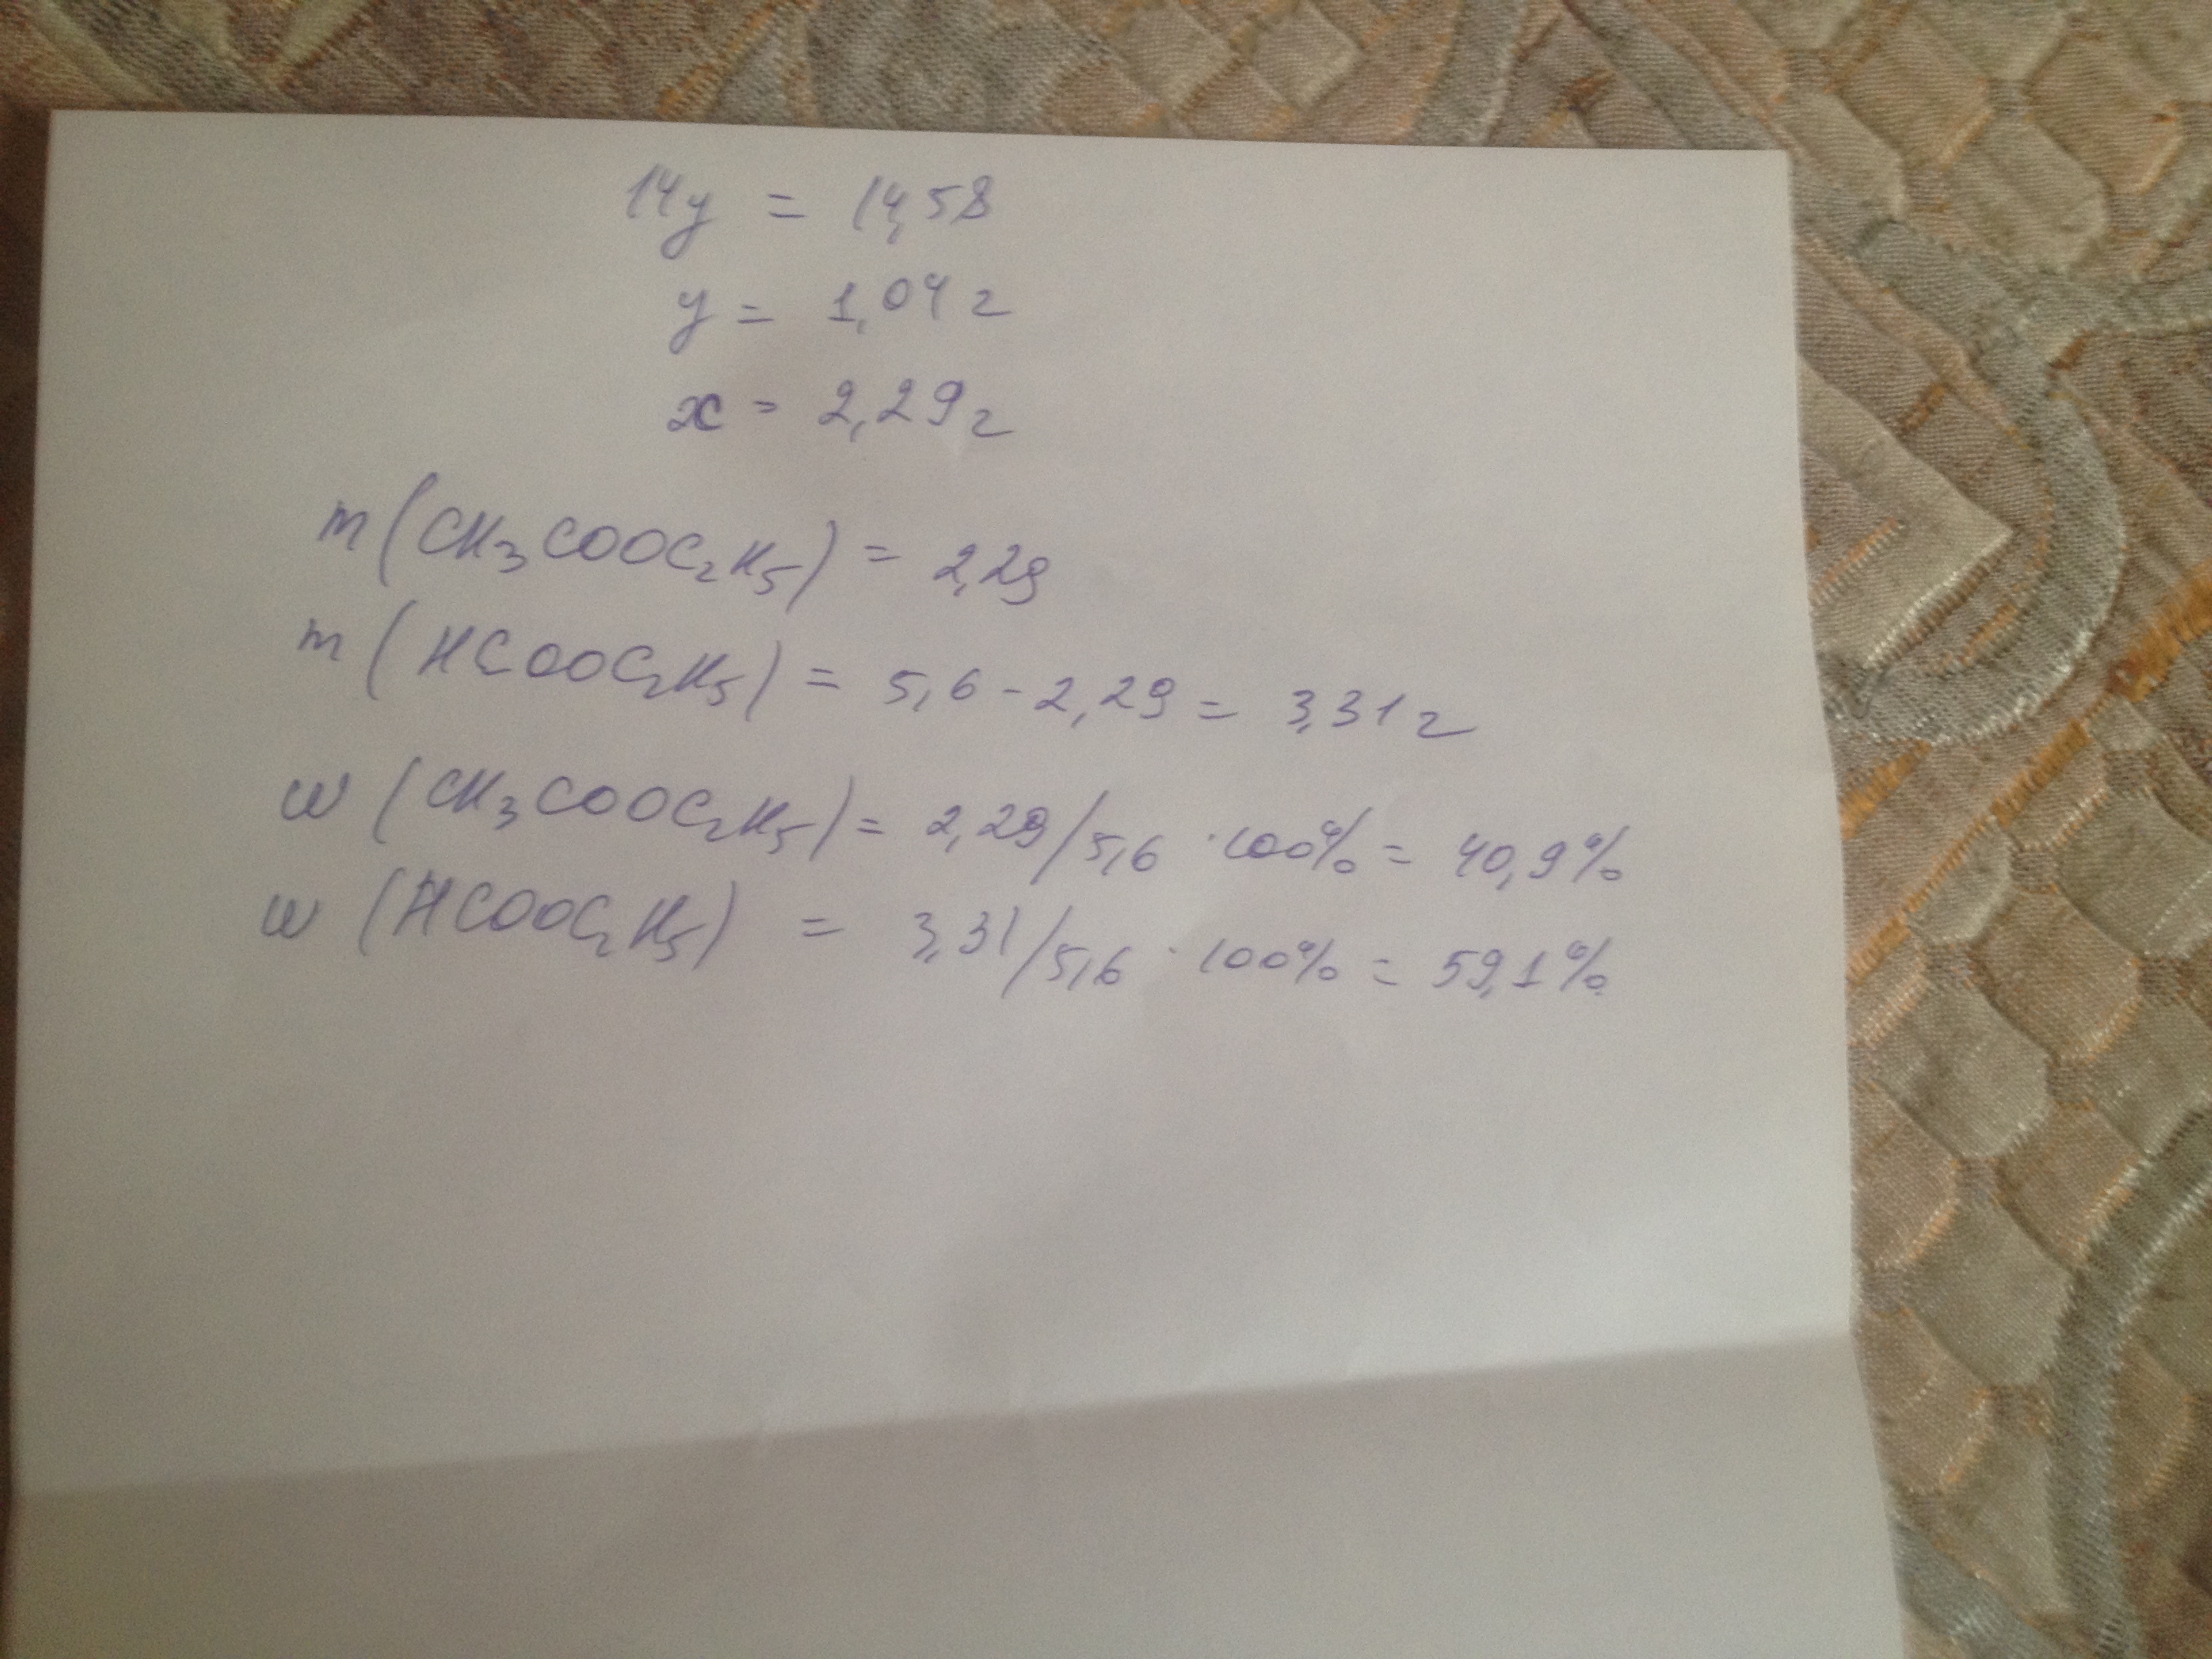 14y = 14,58
y = 1,04 г
x = 2,29 г
m (CH₃COOC₂H₅) = 2,29
m (HCOOC₂H₅) = 5,6 - 2,29 = 3,31 г
ω (CH₃COOC₂H₅) = 2,29/5,6 · 100% = 40,9%
ω (HCOOC₂H₅) = 3,31/5,6 · 100% = 59,1%